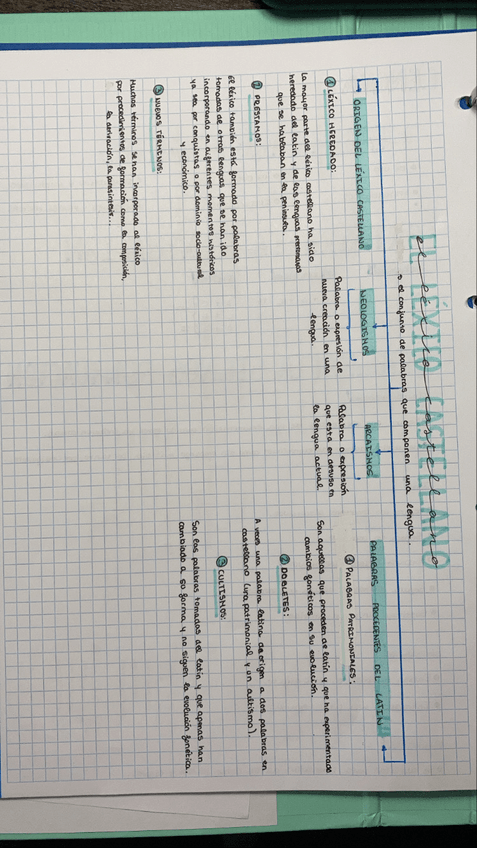 EL LÉXICO CASTELLANO
el léxico castellano
es el conjunto de palabras que componen una lengua.
ORIGEN DEL LÉXICO CASTELLANO
① LÉXICO HEREDADO:
La mayor parte del léxico castellano ha sido
heredado del latín y de las lenguas prerromanas
que se hablaban en la península.
② PRÉSTAMOS:
El léxico también está formado por palabras
tomadas de otras lenguas que se han ido
incorporando en diferentes momentos históricos
ya sea por conquistas o por dominio socio-cultural
y económico.
③ NUEVOS TÉRMINOS:
Muchos términos se han incorporado al léxico
por procedimientos de formación como la composición,
la derivación, la parasíntesis...
NEOLOGISMOS
Palabra o expresión de
nueva creación en una
lengua.
ARCAISMOS
Palabra o expresión
que esta en desuso en
la lengua actual
PALABRAS PROCEDENTES DEL LATÍN
① PALABRAS PATRIMONIALES:
Son aquellas que proceden de latín y que ha experimentado
cambios fonéticos en su evolución.
② DOBLETES:
A veces una palabra latina da origen a dos palabras en
castellano (una patrimonial y un cultismo).
③ CULTISMOS:
Son las palabras tomadas del latín y que apenas han
cambiado a su forma y no siguen la evolución fonética.